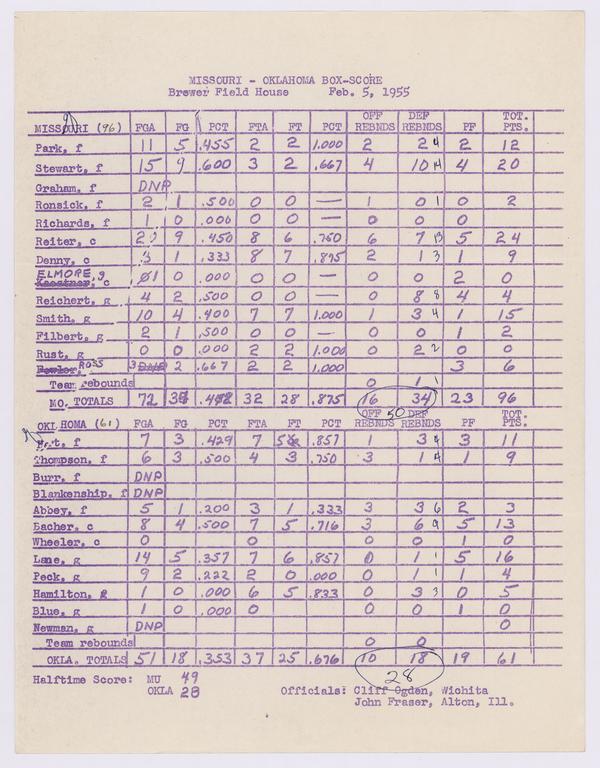 MISSOURI - OKLAHOMA BOX-SCORE
Brewer Field House Feb. 5, 1955
MISSOURI (96) FGA FG PCT FTA FT PCT OFF REBNDS DEF REBNDS PF TOT. PTS.
Park, f 11 5 .455 2 2 1.000 2 2 4 2 12
Stewart, f 15 9 .600 3 2 .667 4 10 14 4 20
Graham, f DNP
Ronsick, f 2 1 .500 0 0 — 1 0 1 0 2
Richards, f 1 0 .000 0 0 — 0 0 0
Reiter, c 20 9 .450 8 6 .750 6 7 13 5 24
Denny, c 3 1 .333 8 7 .875 2 1 3 1 9
ELMORE, g 1 0 .000 0 0 — 0 0 2 0
Reichert, g 4 2 .500 0 0 — 0 8 8 4 4
Smith, g 10 4 .400 7 7 1.000 1 3 4 1 15
Filbert, g 2 1 .500 0 0 — 0 0 1 2
Rust, g 0 0 .000 2 2 1.000 0 2 2 0 0
ROSS 3 2 .667 2 2 1.000 3 6
Team rebounds 0 1 1
MO. TOTALS 72 32 28 .875 16 34 23 96
50
OKLAHOMA (61) FGA FG PCT FTA FT PCT OFF REBNDS DEF REBNDS PF TOT. PTS.
7 3 .429 7 .857 1 3 4 3 11
Thompson, f 6 3 .500 4 3 .750 3 1 4 1 9
Burr, f DNP
Blankenship, f DNP
Abbey, f 5 1 .200 3 1 .333 3 3 6 2 3
Bacher, c 8 4 .500 7 5 .716 3 6 9 5 13
Wheeler, c 0 0 0 0 1 0
Lane, g 14 5 .357 7 6 .857 0 1 1 5 16
Peck, g 9 2 .222 2 0 .000 0 1 1 1 4
Hamilton, g 1 0 .000 6 5 .833 0 3 3 0 5
Blue, g 1 0 .000 0 0 0 1 0
Newman, g DNP 0
Team rebounds 0 0
OKLA. TOTALS 51 18 .353 37 25 .676 10 18 19 61
28
Halftime Score: MU 49
OKLA 28
Officials: Cliff Ogden, Wichita
John Fraser, Alton, Ill.